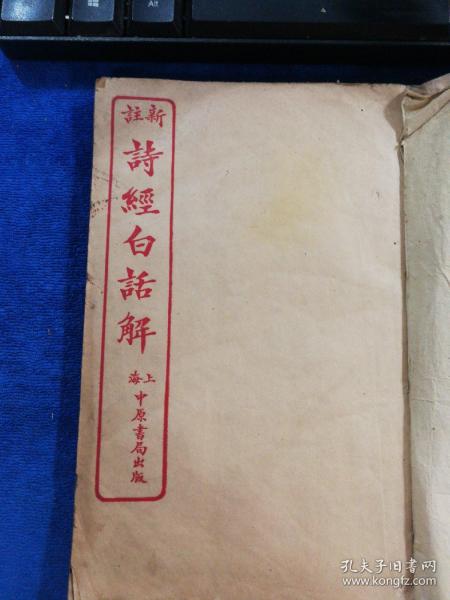 新註
詩經白話解
上海
中原書局出版
Alt
孔夫子旧书网
www.kongfz.com